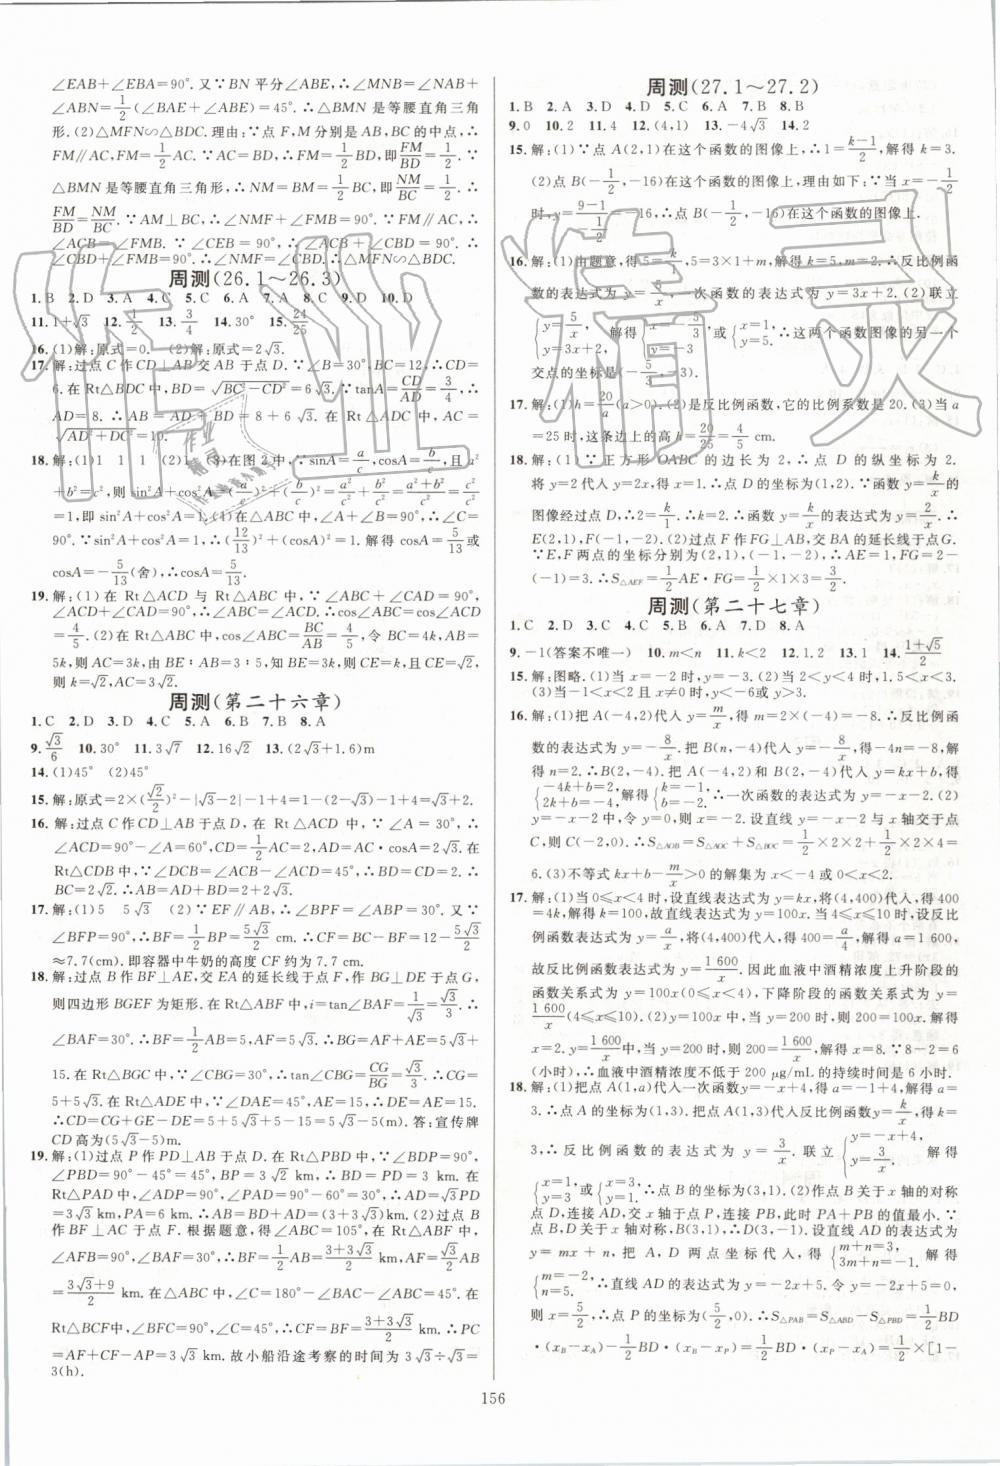 ∠EAB+∠EBA=90°. 又∵BN 平分∠ABE,∴∠MNB=∠NAB+
∠ABN=1/2(∠BAE+∠ABE)=45°.∴△BMN 是等腰直角三角
形.(2)△MFN∽△BDC. 理由:∵点 F,M 分别是 AB,BC 的中点,∴
FM∥AC,FM=1/2AC. ∵AC=BD,∴FM=1/2BD,即FM/BD=1/2. ∵
△BMN 是等腰直角三角形,∴NM=BM=1/2BC,即NM/BC=1/2.∴
FM/BD=NM/BC. ∵AM⊥BC,∴∠NMF+∠FMB=90°. ∵FM∥AC,∴
∠ACB=∠FMB. ∵∠CEB=90°,∴∠ACB+∠CBD=90°. ∴
∠CBD+∠FMB=90°.∴∠NMF=∠CBD.∴△MFN∽△BDC.
周测(26.1～26.3)
1. B 2. D 3. A 4. C 5. C 6. A 7. A 8. C 9. D 10. D
11. 1+√3 12. 1/2 13. 3/4 14. 30° 15. 24/25
16. (1)解:原式=0. (2)解:原式=2√3.
17. 解:过点 C 作 CD⊥AB 交 AB 于点 D. ∵∠B=30°,BC=12,∴CD=
6. 在 Rt△BDC 中,BD=√(BC²−CD²)=6√3. ∵tanA=CD/AD=3/4,∴
AD=8. ∴AB=AD+BD=8+6√3. 在 Rt△ADC 中,AC=
√(AD²+DC²)=10.
18. 解:(1)1 1 1 (2)1 (3)在图 2 中,∵sinA=a/c,cosA=b/c,且 a²
+b²=c²,则 sin²A+cos²A=(a/c)²+(b/c)²=a²/c²+b²/c²=(a²+b²)/c²=c²/c²
=1,即 sin²A+cos²A=1.(4)在△ABC 中,∠A+∠B=90°,∴∠C=
90°. ∵sin²A+cos²A=1,∴(12/13)²+cos²A=1. 解得 cosA=5/13或
cosA=−5/13(舍),∴cosA=5/13.
19. 解:(1)在 Rt△ACD 与 Rt△ABC 中,∵∠ABC+∠CAB=90°,
∠ACD+∠CAD=90°,∴∠ABC=∠ACD.∴cos∠ABC=cos∠ACD=
4/5. (2)在 Rt△ABC 中,cos∠ABC=BC/AB=4/5,令 BC=4k,AB=
5k,则 AC=3k. 由 BE∶AB=3∶5,知 BE=3k,则 CE=k,且 CE=√2,
则 k=√2,AC=3√2.
周测(第二十六章)
1. C 2. D 3. D 4. C 5. A 6. B 7. B 8. A
9. √3/6 10. 30° 11. 3√7 12. 16√2 13. (2√3+1.6)m
14. (1)45° (2)45°
15. 解:原式=2×(√2/2)²−|√3−2|−1+4=1−(2−√3)−1+4=√3+2.
16. 解:过点 C 作 CD⊥AB 于点 D,在 Rt△ACD 中,∵∠A=30°,∴
∠ACD=90°−∠A=60°,CD=1/2AC=2√3,AD=AC·cosA=6.在
Rt△CDB 中,∵∠DCB=∠ACB−∠ACD=45°,∴BD=CD=2√3.∴
BC=2√6.∴AB=AD+BD=6+2√3.
17. 解:(1)5 5√3 (2)∵EF∥AB,∴∠BPF=∠ABP=30°. 又∵
∠BFP=90°,∴BF=1/2BP=5√3/2 cm.∴CF=BC−BF=12−5√3/2
≈7.7(cm).即容器中牛奶的高度 CF 约为 7.7 cm.
18. 解:过点 B 作 BF⊥AE,交 EA 的延长线于点 F,作 BG⊥DE 于点 G,
则四边形 BGEF 为矩形. 在 Rt△ABF 中,i=tan∠BAF=1/√3=√3/3,∴
∠BAF=30°.∴BF=1/2AB=5,AF=5√3.∴BG=AF+AE=5√3+
15. 在 Rt△BGC 中,∵∠CBG=30°,∴tan∠CBG=CG/BG=√3/3,∴CG=
5+5√3.在 Rt△ADE 中,∵∠DAE=45°,AE=15,∴DE=AE=15.
∴CD=CG+GE−DE=5+5√3+5−15=5√3−5(m). 答:宣传牌
CD 高为(5√3−5)m.
19. 解:(1)过点 P 作 PD⊥AB 于点 D. 在 Rt△PBD 中,∵∠BDP=90°,
∠PBD=90°−45°=45°,BP=3√2 km,∴BD=PD=3 km. 在
Rt△PAD 中,∠ADP=90°,∠PAD=90°−60°=30°,∴AD=√3PD
=3√3 km,PA=6 km.∴AB=BD+AD=(3+3√3) km. (2)过点 B
作 BF⊥AC 于点 F. 根据题意,得∠ABC=105°,在 Rt△ABF 中,
∠AFB=90°,∠BAF=30°,∴BF=1/2AB=(3+3√3)/2 km,AF=√3/2AB
=(3√3+9)/2 km. 在△ABC 中,∠C=180°−∠BAC−∠ABC=45°. 在
Rt△BCF中,∠BFC=90°,∠C=45°,∴CF=BF=(3+3√3)/2 km.∴PC
=AF+CF−AP=3√3 km. 故小船沿途考察的时间为 3√3÷√3=
3(h).
周测(27.1～27.2)
1. B 2. A 3. D 4. D 5. C 6. A 7. B 8. B
9. 0 10. 2 11. 4 12. (4,1) 13. −4√3 14. 2
15. 解:(1)∵点 A(2,1)在这个函数的图像上,∴1=(k−1)/2,解得 k=3.
(2)点 B(−1/2,−16)在这个函数的图像上,理由如下:∵当 x=−1/2
时,y=(9−1)/(−1/2)=−16,∴点 B(−1/2,−16)在这个函数的图像上.
16. 解:(1)由题意,得 5=k/1,5=3×1+m,∴k=5,m=2.∴反比例函
数的表达式为 y=5/x,一次函数的表达式为 y=3x+2. (2)联立
{y=5/x, y=3x+2, 解得{x=−5/3, y=−3 或{x=1, y=5. ∴这两个函数图像的另一个
交点的坐标是(−5/3,−3).
17. 解:(1)h=20/a(a>0).(2)是反比例函数,它的比例系数是 20.(3)当 a
=25 时,这条边上的高 h=20/25=4/5 cm.
18. 解:(1)∵正方形 OABC 的边长为 2,∴点 D 的纵坐标为 2.
将 y=2 代入 y=2x,得 x=1.∴点 D 的坐标为(1,2). ∵函数 y=k/x的
图像经过点 D,∴2=k/1.∴k=2.∴函数 y=k/x的表达式为 y=2/x.∴
E(2,1),F(−1,−2).(2)过点 F 作 FG⊥AB,交 BA 的延长线于点 G.
∵E,F 两点的坐标分别为(2,1),(−1,−2),∴AE=1,FG=2−
(−1)=3.∴S△AEF=1/2AE·FG=1/2×1×3=3/2.
周测(第二十七章)
1. C 2. D 3. C 4. C 5. D 6. A 7. D 8. A
9. −1(答案不唯一) 10. m<n 11. k<2 12. 1,2 13. 1 14. (1+√5)/2
15. 解:图略.(1)当 x=−2 时,y=−3.(2)当 2<y<4 时,1.5<x<3.
(3)当−1<x<2 且 x≠0 时,y<−6 或 y>3.
16. 解:(1)把 A(−4,2)代入 y=m/x,得 m=2×(−4)=−8.∴反比例函
数的表达式为 y=−8/x.把 B(n,−4)代入 y=−8/x,得−4n=−8,解
得 n=2.∴B(2,−4).把 A(−4,2)和 B(2,−4)代入 y=kx+b,得
{−4k+b=2, 2k+b=−4, 解得{k=−1, b=−2. ∴一次函数的表达式为 y=−x−2.(2)
y=−x−2 中,令 y=0,则 x=−2. 设直线 y=−x−2 与 x 轴交于点
C,则 C(−2,0).∴S△AOB=S△AOC+S△BOC=1/2×2×2+1/2×2×4=
6.(3)不等式 kx+b−m/x>0 的解集为 x<−4 或 0<x<2.
17. 解:(1)当 0≤x<4 时,设直线表达式为 y=kx,将(4,400)代入,得 400
=4k,解得 k=100,故直线表达式为 y=100x. 当 4≤x≤10 时,设反比
例函数表达式为 y=a/x,将(4,400)代入,得 400=a/4,解得 a=1 600,
故反比例函数表达式为 y=1 600/x. 因此血液中酒精浓度上升阶段的
函数关系式为 y=100x(0≤x<4),下降阶段的函数关系式为 y=
1 600/x(4≤x≤10).(2)令 y=200,在 y=100x 中,当 y=200 时,解得
x=2. 在 y=1 600/x中,当 y=200 时,200=1 600/x,解得 x=8. ∵8−2=6
(小时),∴血液中酒精浓度不低于 200 μg/mL 的持续时间是 6 小时.
18. 解:(1)把点 A(1,a)代入一次函数 y=−x+4,得 a=−1+4,解得 a=
3.∴点 A 的坐标为(1,3).把点 A(1,3)代入反比例函数 y=k/x,得 k=
3,∴反比例函数的表达式为 y=3/x. 联立{y=−x+4, y=3/x, 解得
{x=1, y=3 或{x=3, y=1. ∴点 B 的坐标为(3,1).(2)作点 B 关于 x 轴的对称
点 D,连接 AD,交 x 轴于点 P,连接 PB,此时 PA+PB 的值最小. ∵点
B,D 关于 x 轴对称,B(3,1),∴D(3,−1). 设直线 AD 的表达式为
y=mx+n,把 A,D 两点坐标代入,得{m+n=3, 3m+n=−1. 解得
{m=−2, n=5. ∴直线 AD 的表达式为 y=−2x+5. 令 y=−2x+5=0,
则 x=5/2,∴点 P 的坐标为(5/2,0).∴S△PAB=S△ABD−S△PBD=1/2BD
·(xB−xA)−1/2BD·(xB−xP)=1/2BD·(xP−xA)=1/2×[1−
156